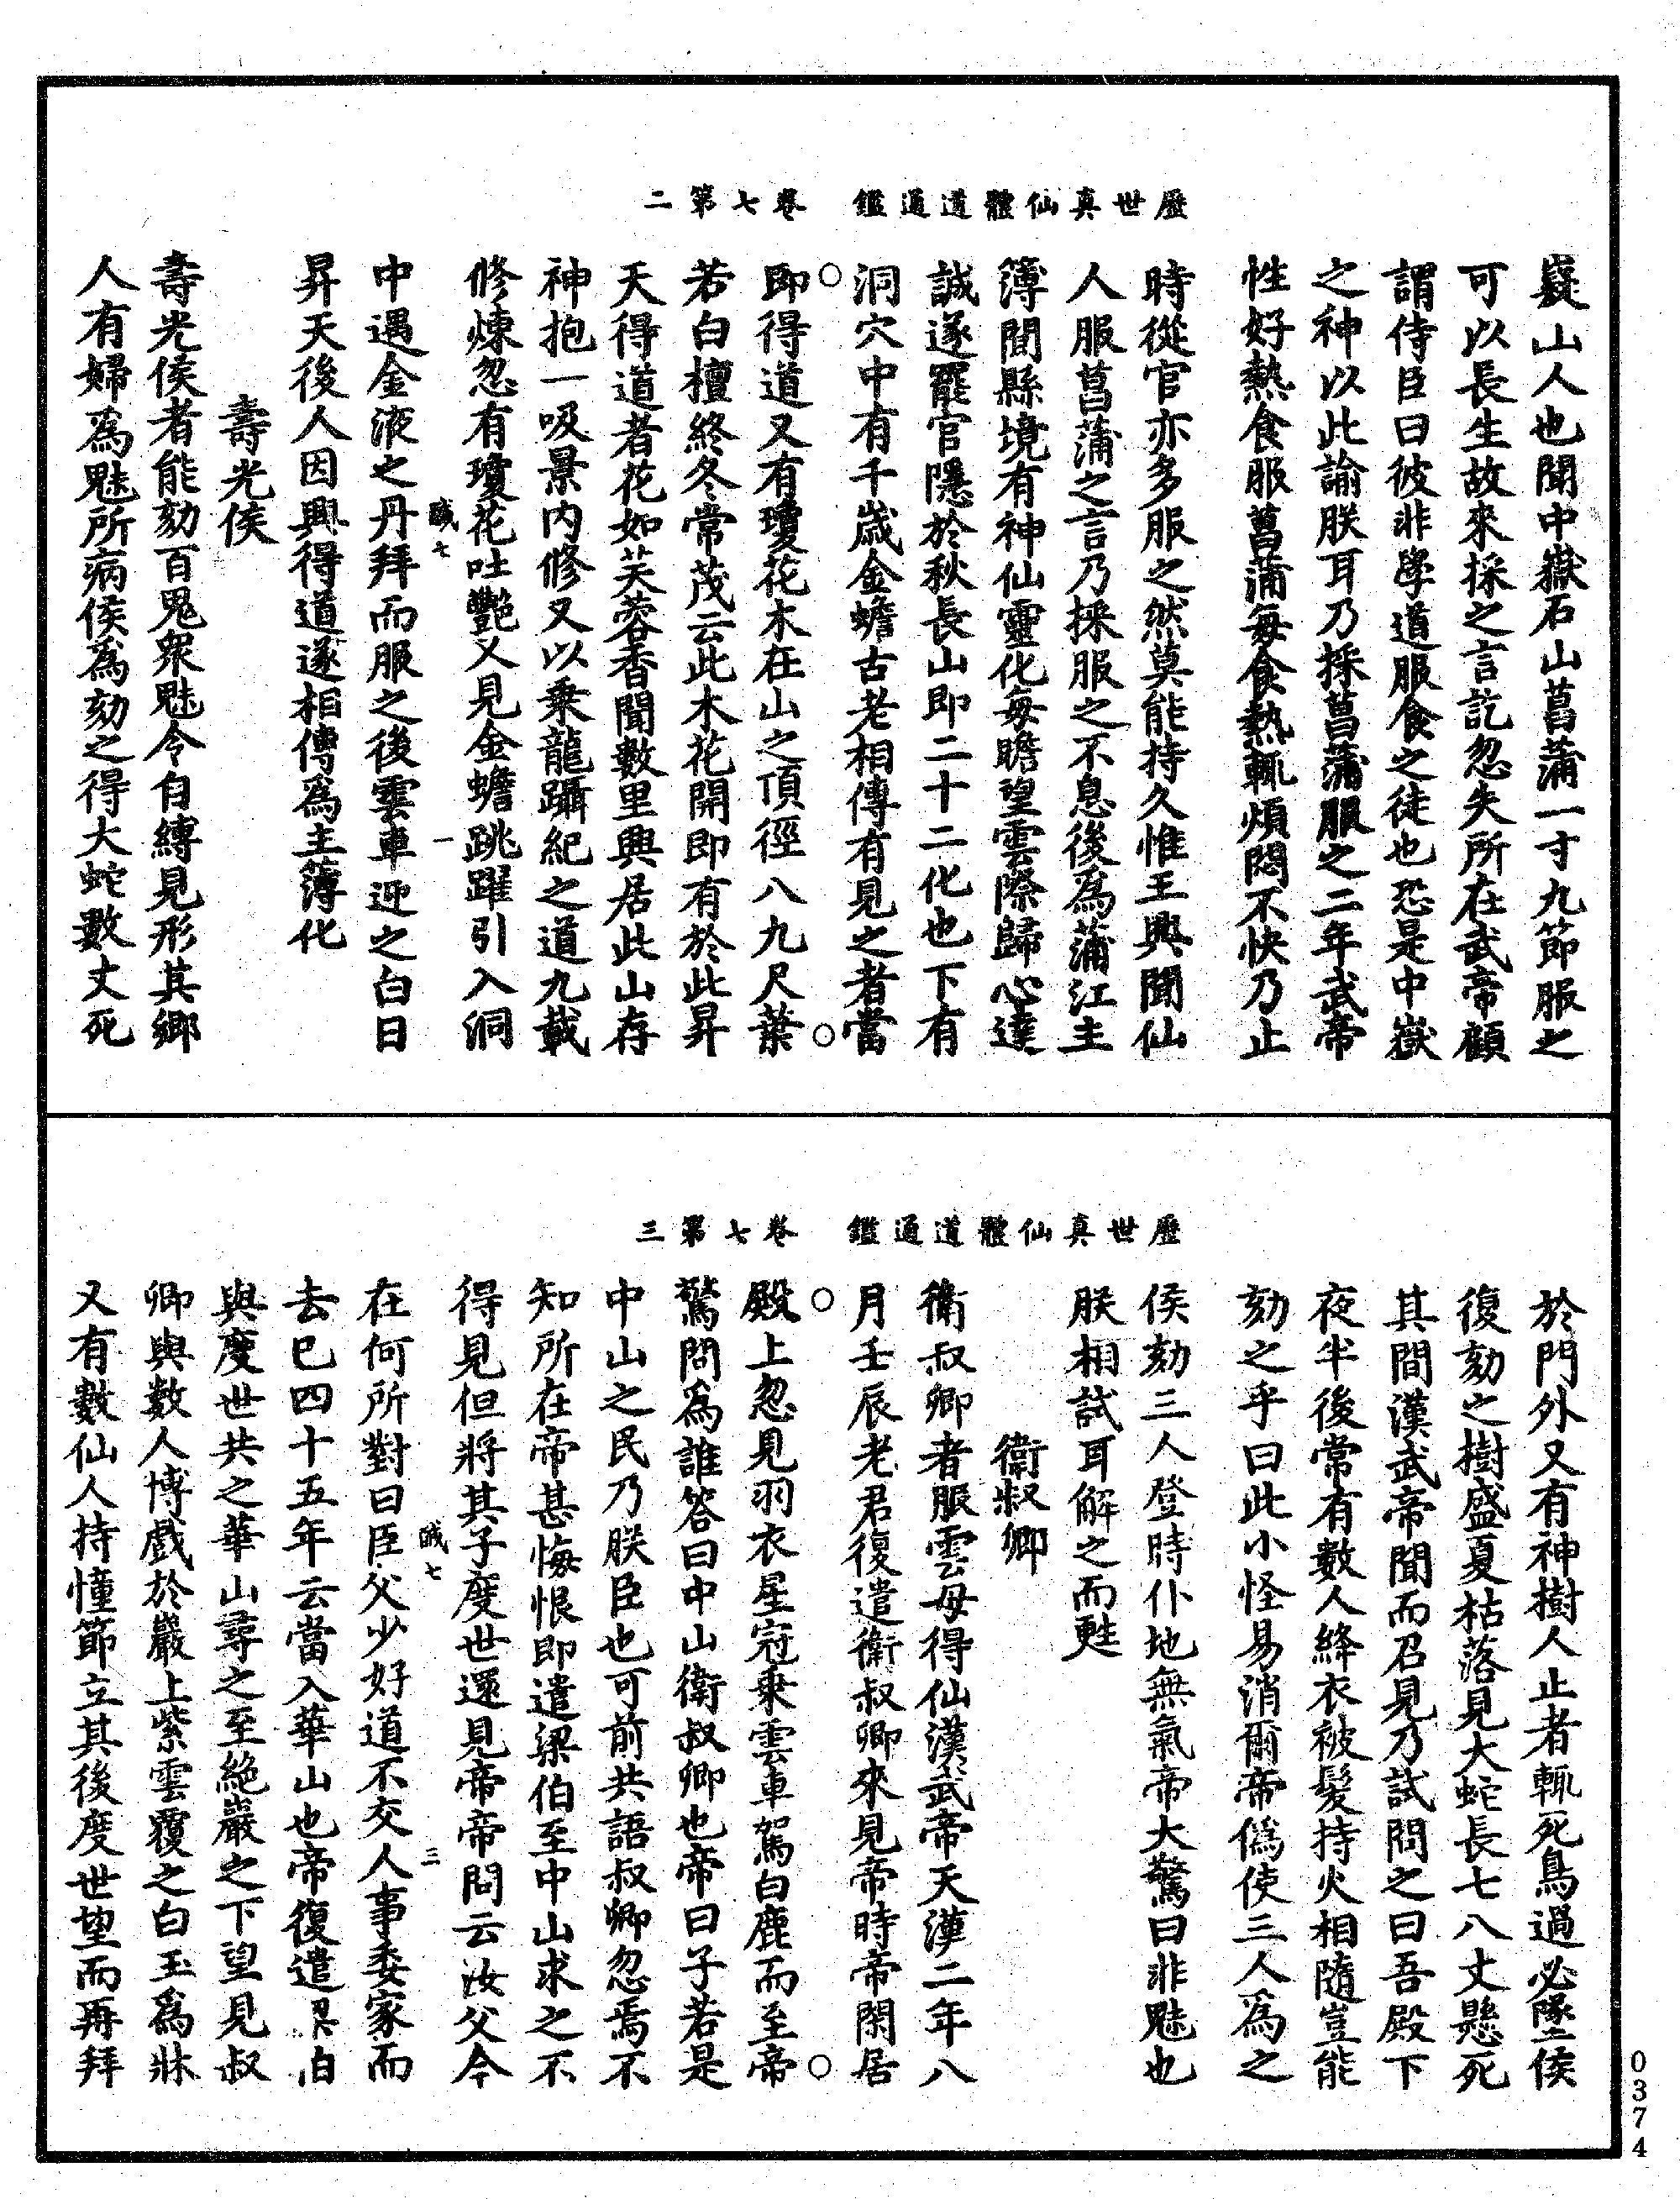 歷世真仙體道通鑑　卷七第二
嶷山人也聞中嶽石山菖蒲一寸九節服之
可以長生故來採之言訖忽失所在武帝顧
謂侍臣曰彼非學道服食之徒也恐是中嶽
之神以此諭朕耳乃採菖蒲服之二年武帝
性好熱食服菖蒲每食熱輒煩悶不快乃止
時從官亦多服之然莫能持久惟王興聞仙
人服菖蒲之言乃採服之不息後為蒲江主
簿聞縣境有神仙靈化每瞻望雲際歸心達
誠遂罷官隱於秋長山即二十二化也下有
洞穴中有千歲金蟾古老相傳有見之者當
○　○
即得道又有瓊花木在山之頂徑八九尺葉
若白檀終冬常茂云此木花開即有於此昇
天得道者花如芙蓉香聞數里興居此山存
神抱一吸景内修又以乗龍躡紀之道九載
修煉忽有瓊花吐艷又見金蟾跳躍引入洞
醎七　一
中遇金液之丹拜而服之後雲車迎之白日
昇天後人因興得道遂相傳為主簿化
壽光侯
壽光侯者能劾百鬼衆魅令自縛見形其鄉
人有婦為魅所病侯為劾之得大蛇數丈死
歷世真仙體道通鑑　卷七第三
於門外又有神樹人止者輒死鳥過必墜侯
復劾之樹盛夏枯落見大蛇長七八丈懸死
其間漢武帝聞而召見乃試問之曰吾殿下
夜半後常有數人絳衣被髮持火相隨豈能
劾之乎曰此小怪易消爾帝偽使三人為之
侯劾三人登時仆地無氣帝大驚曰非魅也
朕相試耳解之而甦
衛叔卿
衛叔卿者服雲母得仙漢武帝天漢二年八
月壬辰老君復遣衛叔卿來見帝時帝閑居
○　○
殿上忽見羽衣星冠乗雲車駕白鹿而至帝
驚問為誰答曰中山衛叔卿也帝曰子若是
中山之民乃朕臣也可前共語叔卿忽焉不
知所在帝甚悔恨即遣梁伯至中山求之不
得見但將其子度世還見帝帝問云汝父今
醎七　三
在何所對曰臣父少好道不交人事委家而
去已四十五年云當入華山也帝復遣梁伯
與度世共之華山尋之至絶巖之下望見叔
卿與數人博戲於巖上紫雲覆之白玉為牀
又有數仙人持幢節立其後度世望而再拜
0374